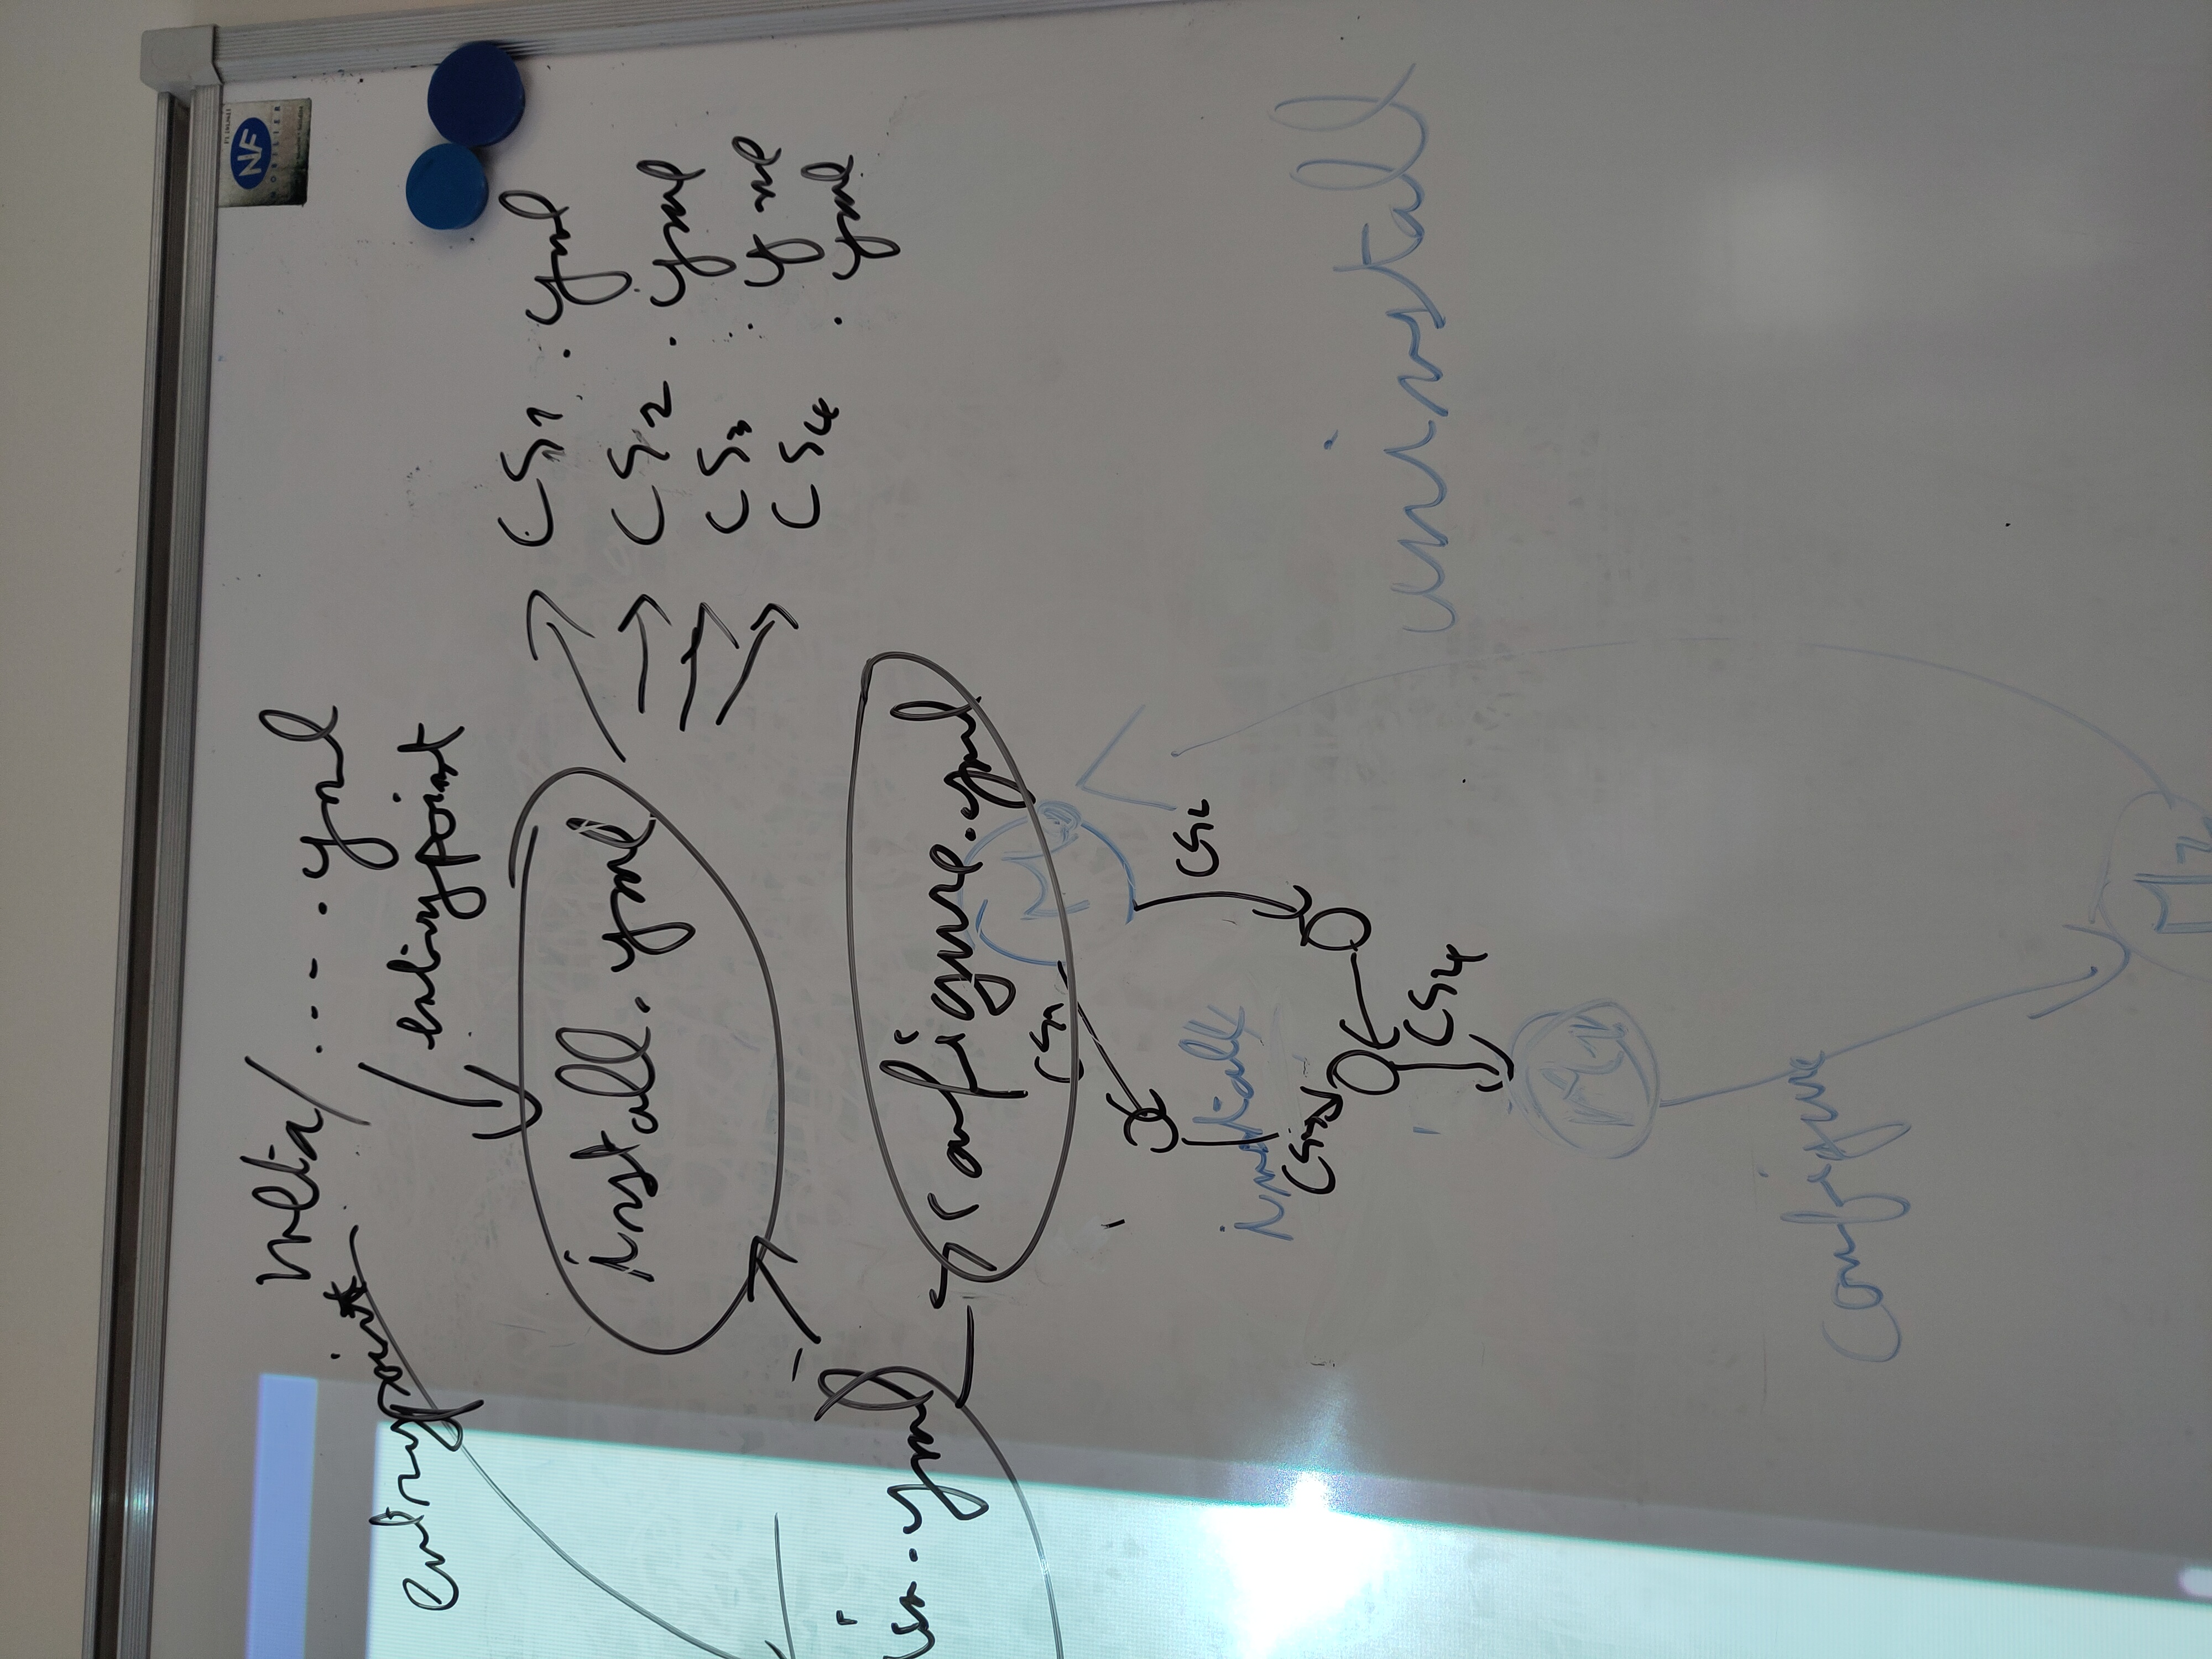 meta/ .---.yml
entrypoint
/entrypoint
install.yml
CS1.yml
CS2.yml
CS3.yml
CS4.yml
configure.yml
CS1
CS2
install
CS3
CS4
M1
configure
M2
uninstall
NF
MOBILIER